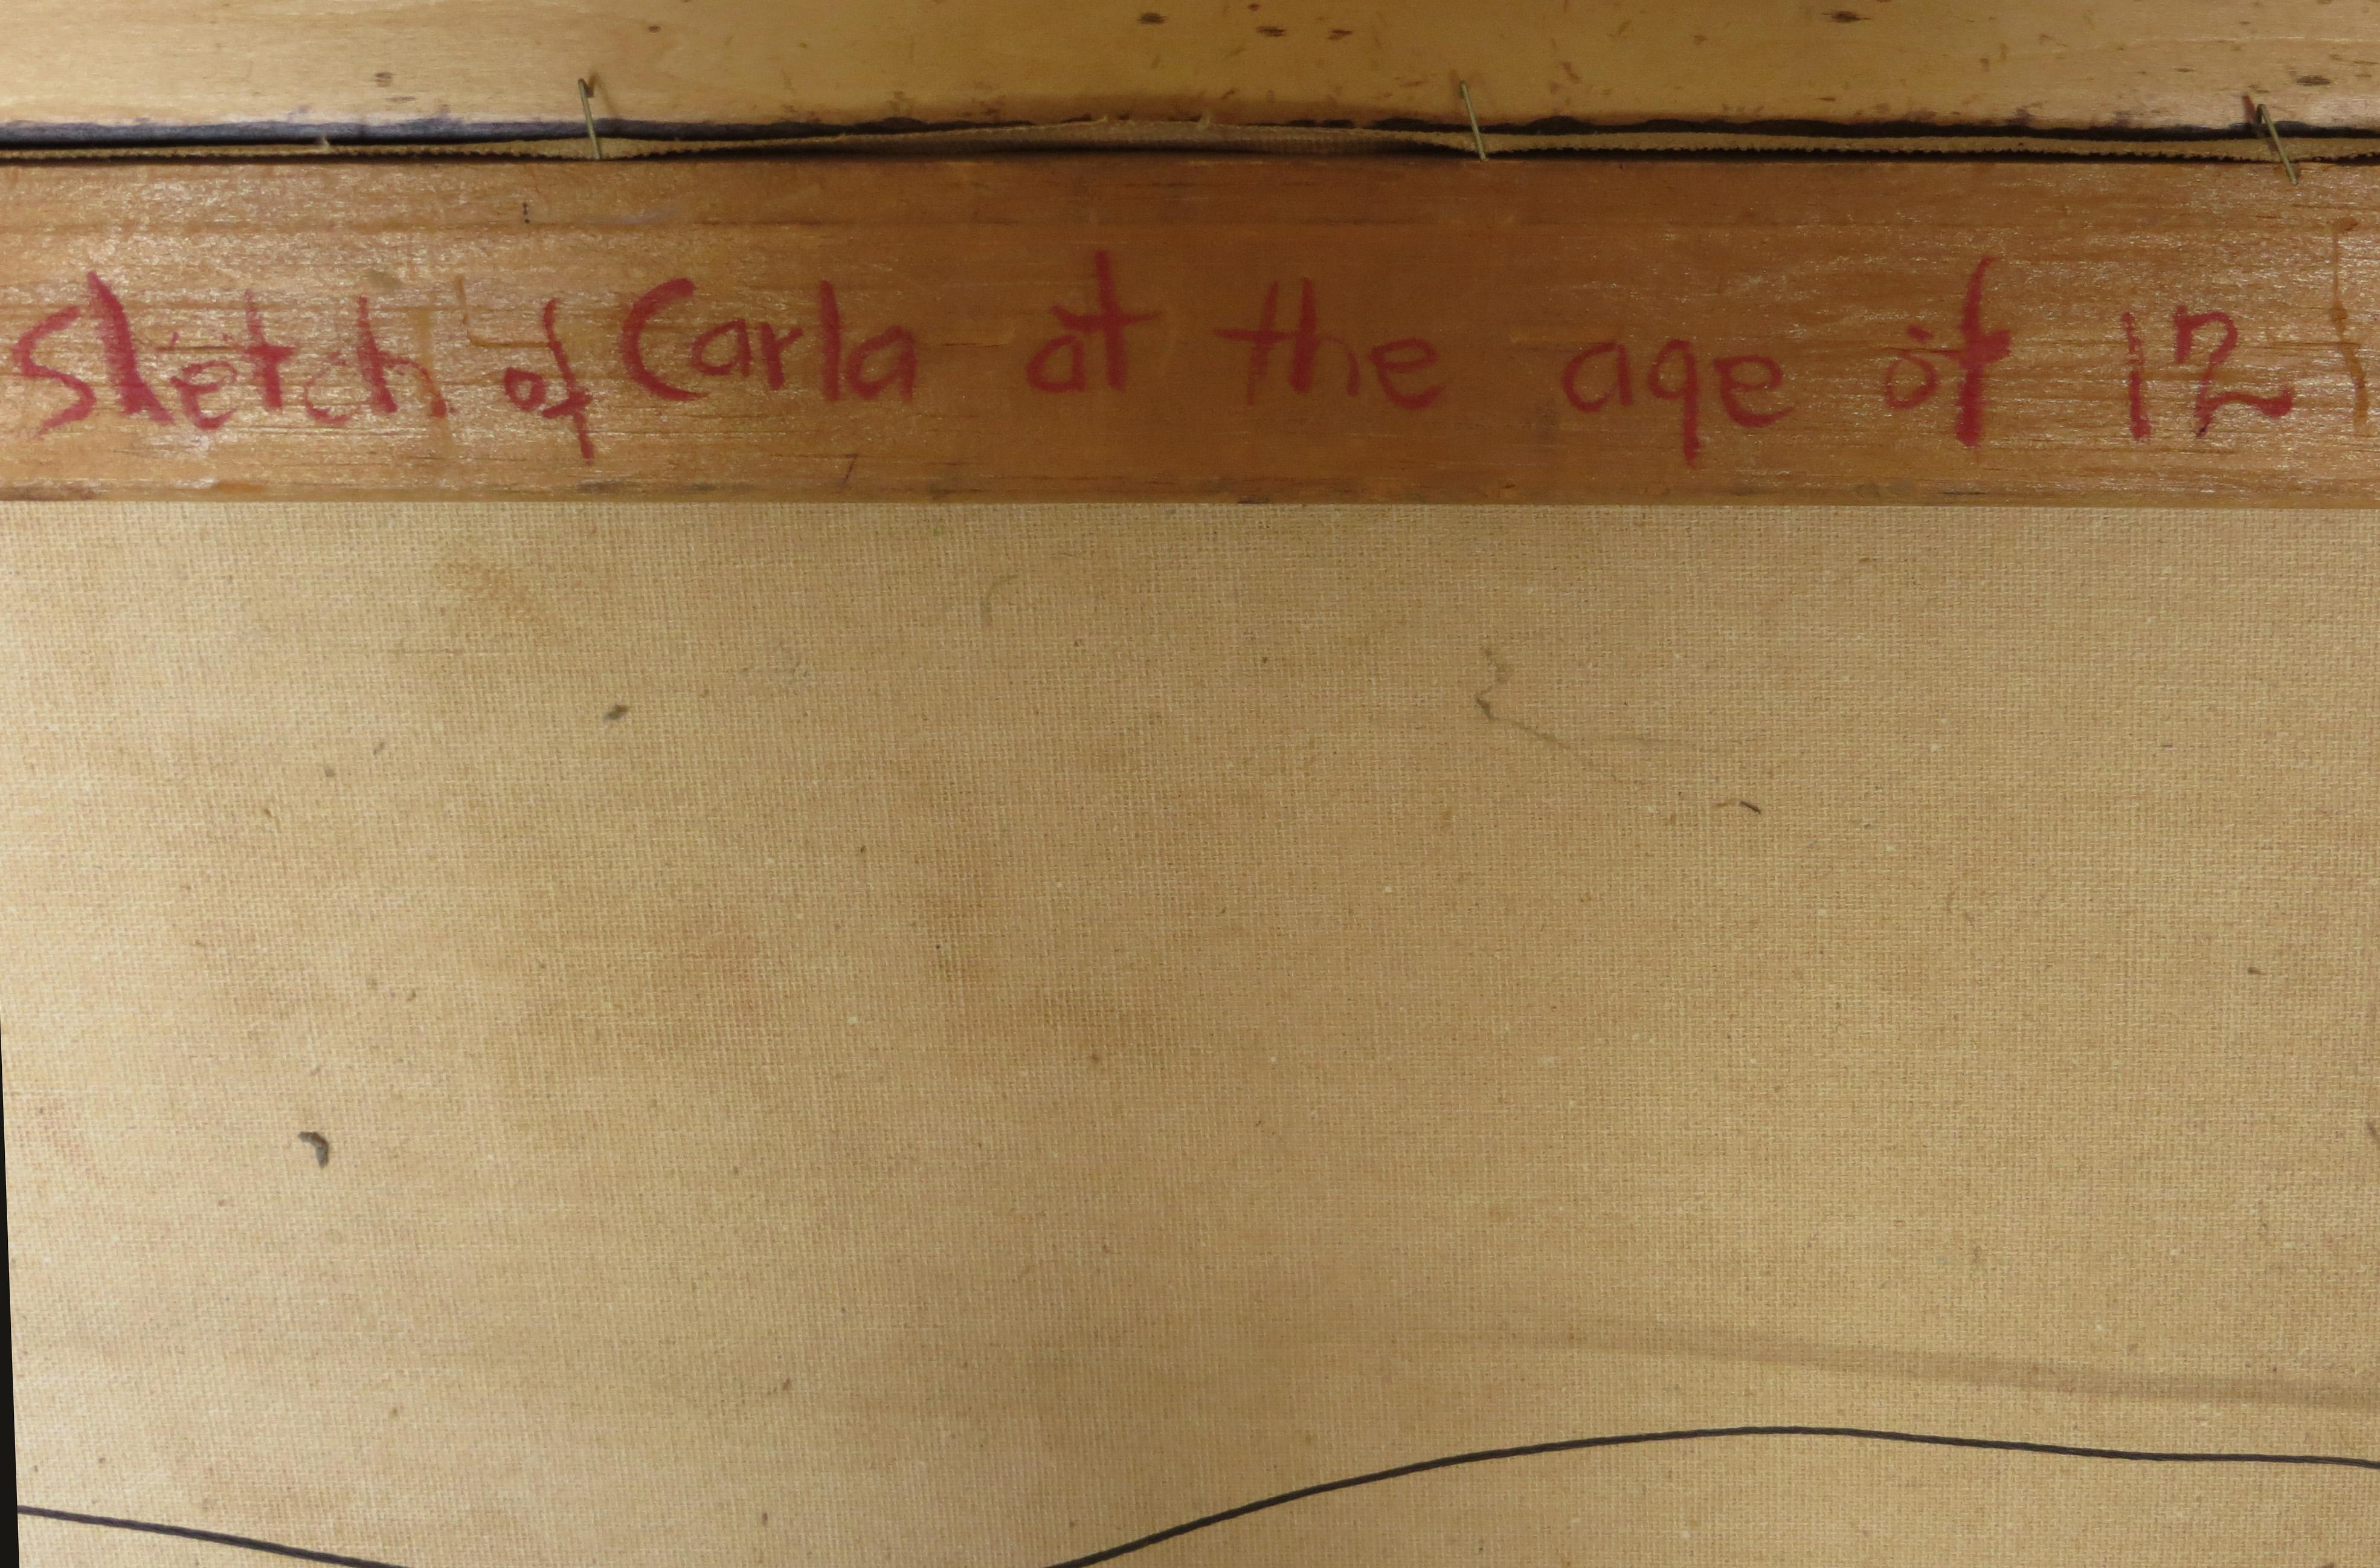 Sketch of Carla at the age of 12